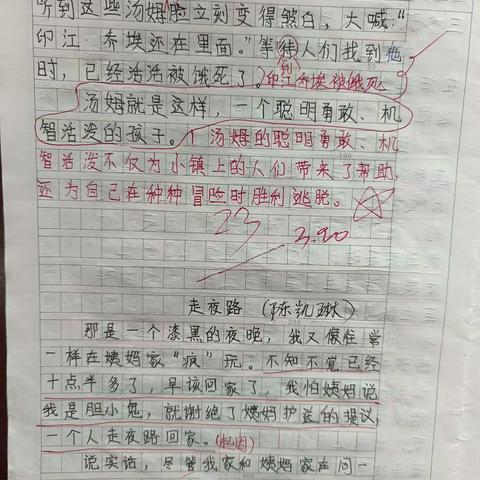 听到这些汤姆脸立刻变得煞白，大喊：“
印江·乔埃还在里面。”等待人们找到他
时，已经活活被饿死了。印江·乔埃被饿死
到
汤姆就是这样，一个聪明勇敢、机
智活泼的孩子。汤姆的聪明勇敢、机
智活泼不仅为小镇上的人们带来了帮助，
还为自己在种种冒险时胜利逃脱。
23
3.20
走夜路（陈凯琳）
那是一个漆黑的夜晚，我又像往常
一样在姨妈家“疯”玩。不知不觉已经
十点半多了，早该回家了，我怕姨妈说
我是胆小鬼，就谢绝了姨妈护送的提议，
一个人走夜路回家。（起因）
说实话，尽管我家和姨妈家在同一